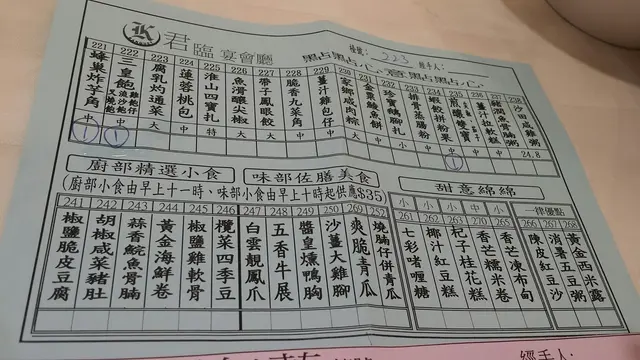 K
君臨 宴會廳
檯號: 223 經手人:
點點心意點點心
221 蜂巢炸芋角 中
222 三皇飽 中
223 腐乳灼通菜 大
224 蓮蓉桃包 中
225 淮山四寶扎 特
226 魚滑釀尖椒 大
227 帶子鳳眼餃 大
228 脆香九菜角 中
229 薑汁雞包仔 中
230
231
232
233 排骨蒸腸粉
234
235
236
237
238 沙田咸雞粥 24.8
廚部精選小食
味部佐膳美食
甜意綿綿
(廚部小食由早上十一時、味部小食由早上十時起供應$35)
241 椒鹽脆皮豆腐
242 胡椒咸菜豬肚
243 蒜香鯇魚骨腩
244 黃金海鮮卷
245 椒鹽雞軟骨
246 欖菜四季豆
247 白雲靚鳳爪
248 五香牛展
249 醬皇燻鴨胸
250 沙薑大雞腳
251 爽脆青瓜
252 燒腩仔併青瓜
小 261 七彩啫喱糖
小 262 椰汁紅豆糕
小 263 杞子桂花糕
中 270 香芒糯米卷
小 265 香芒凍布甸
一律優點
266 陳皮紅豆沙
267 消暑五豆粥
268 黃金西米露
經手人: